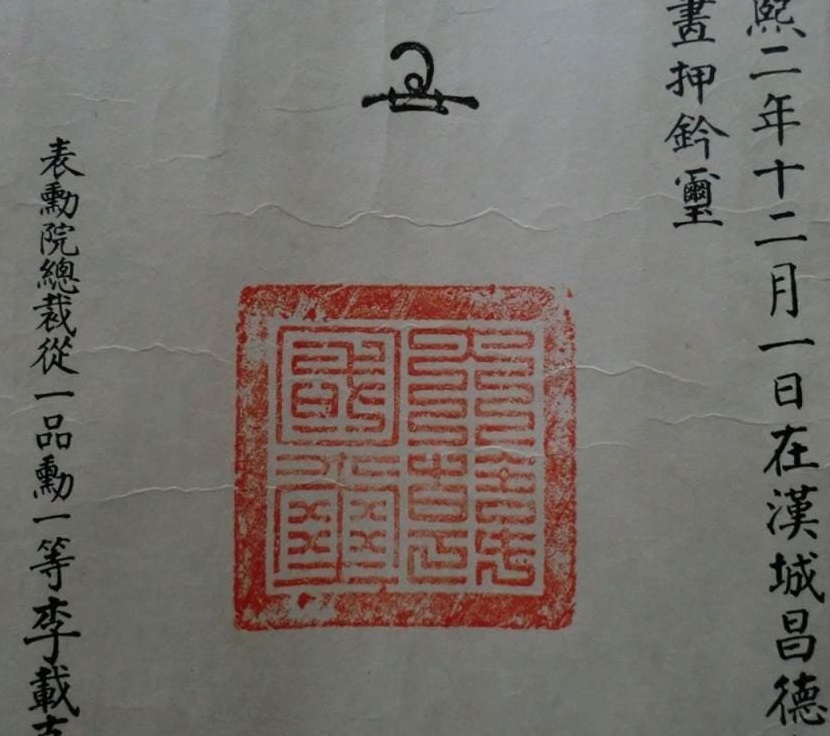 熙二年十二月一日在漢城昌德
畫押鈐璽
大韓國璽
表勳院總裁從一品勳一等李載克